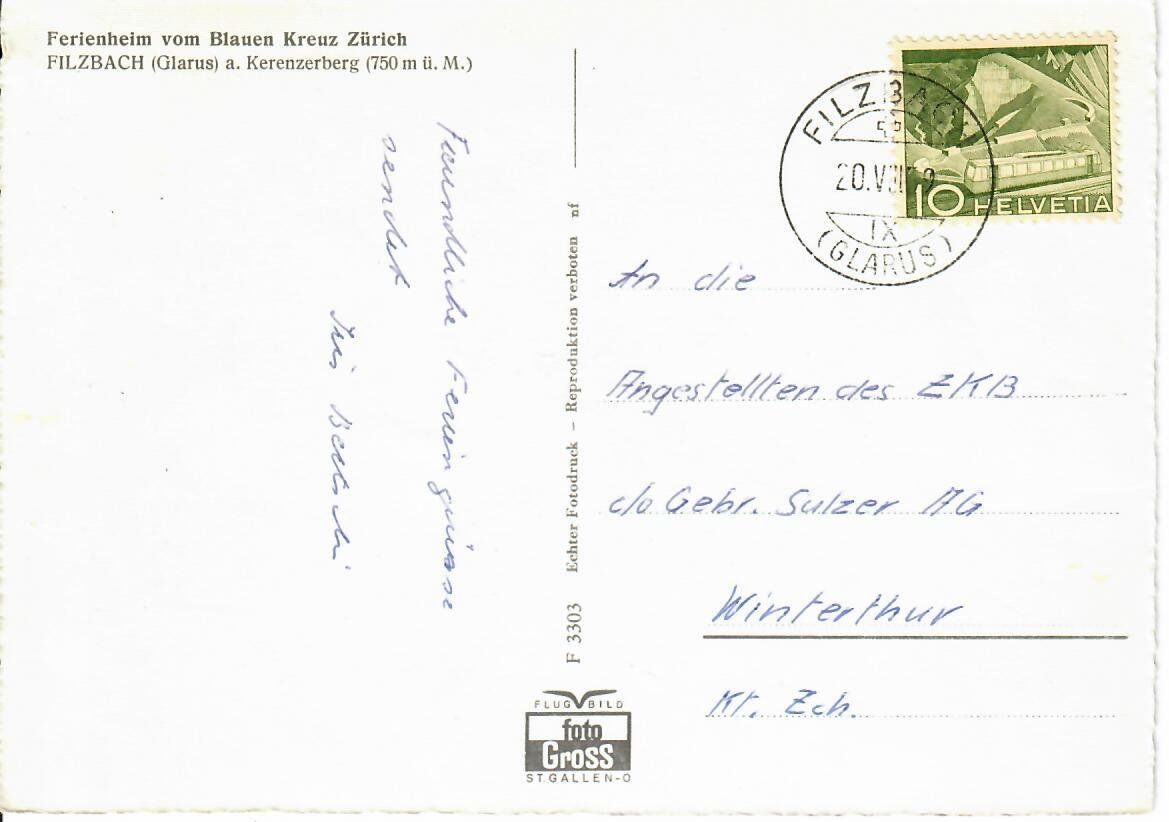 Ferienheim vom Blauen Kreuz Zürich
FILZBACH (Glarus) a. Kerenzerberg (750 m ü. M.)
Freundliche Feriengrüsse
sendet
F 3303 Echter Fotodruck – Reproduktion verboten nf
FLUG BILD
foto
Gross
ST. GALLEN-O
FILZBACH
20.VIII
IX
(GLARUS)
10 HELVETIA
An die
Angestellten des ZKB
c/o Gebr. Sulzer AG
Winterthur
Kt. Zch.